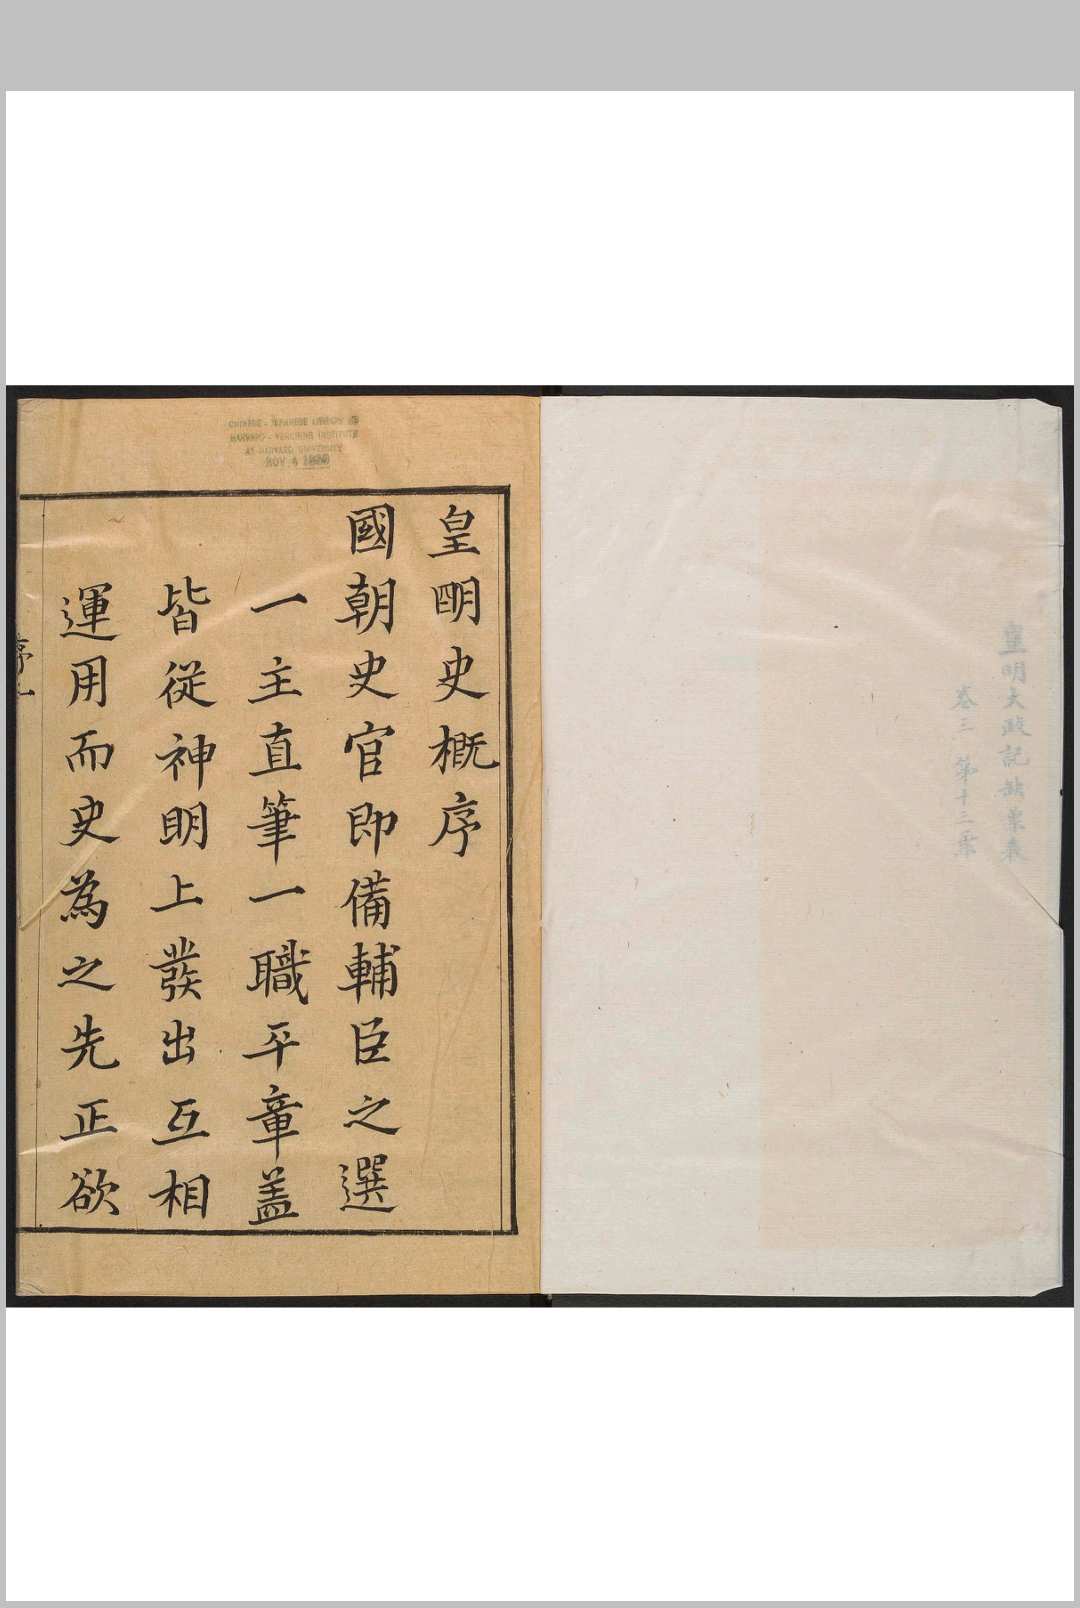 皇明大政記缺葉表
卷三 第十三葉
CHINESE-JAPANESE LIBRARY OF
HARVARD-YENCHING INSTITUTE
AT HARVARD UNIVERSITY
NOV 4
皇明史概序
國朝史官即備輔臣之選
一主直筆一職平章蓋
皆從神明上發出互相
運用而史為之先正欲
序